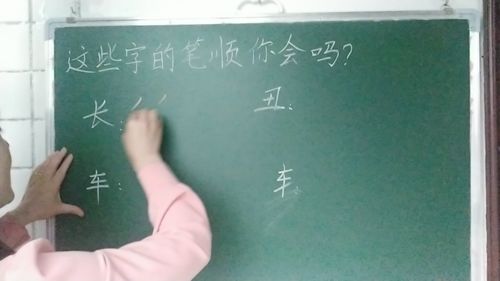 这些字的笔顺你会吗？
长： 丑：
车： 车